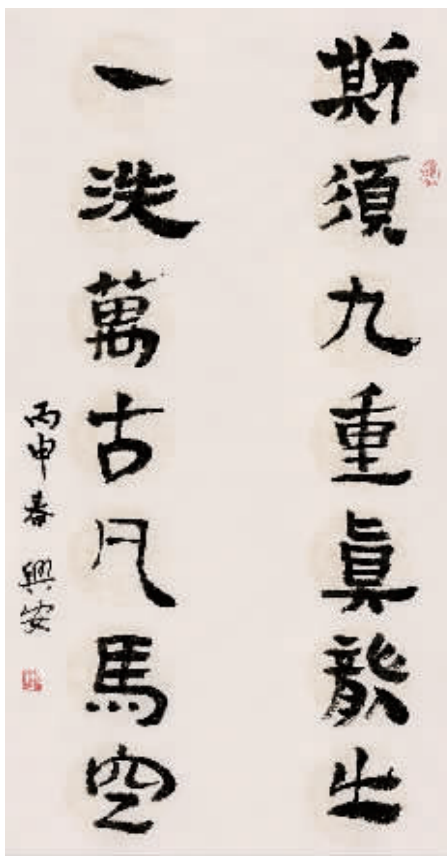 斯須九重真龍出
一洗萬古凡馬空
丙申春 興安